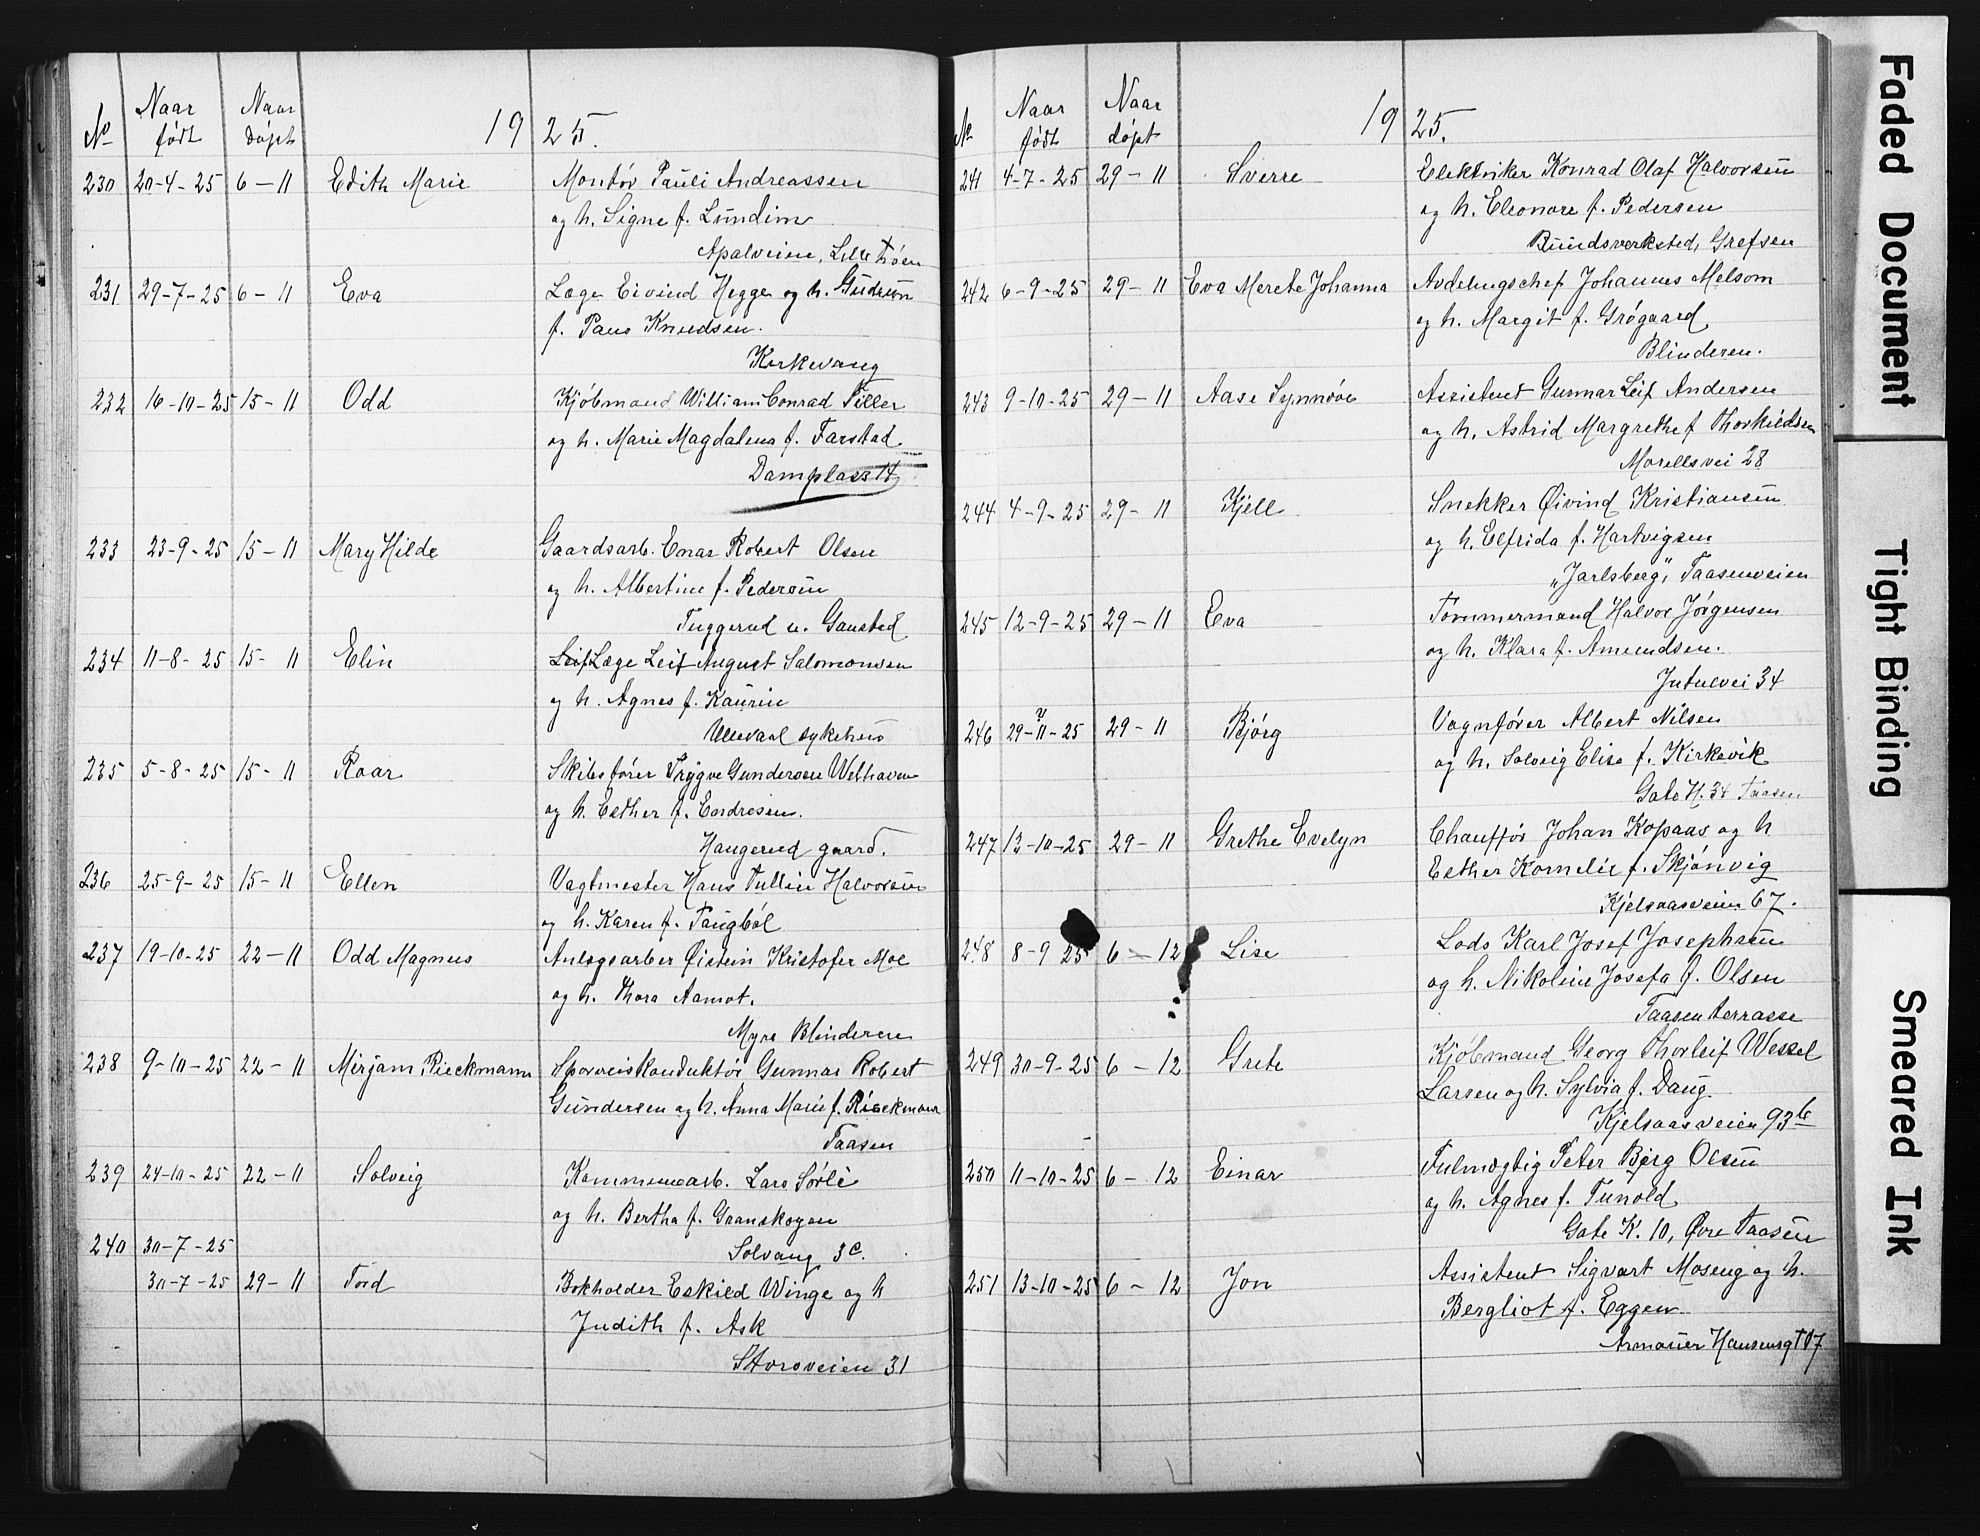 № Naar født Naar døpt 1925.
230 20-4-25 6-11 Edith Marie Montør Pauli Andreassen
og h. Signe f. Lundim
Apalveien, Lille Tøien
231 29-7-25 6-11 Eva Læge Eivind Hegge og h. Gudrun
f. Paus Knudsen.
Korkevang
232 16-10-25 15-11 Odd Kjøbmand William Conrad Tiller
og h. Marie Magdalena f. Farstad
Damplass 14
233 23-9-25 15-11 Mary Hilde Gaardsarb. Enar Robert Olsen
og h. Albertine f. Pedersen
Tuggerud u. Gaustad
234 11-8-25 15-11 Elin Leif Læge Leif August Salomonsen
og h. Agnes f. Kaurin
Ullevaal sykehus
235 5-8-25 15-11 Roar Skibsfører Trygve Gundersen Welhaven
og h. Esther f. Endresen.
Haugerud gaard.
236 25-9-25 15-11 Ellen Vagtmester Hans Tullin Halvorsen
og h. Karen f. Taugbøl
237 19-10-25 22-11 Odd Magnus Anlegsarber Øistein Kristofer Moe
og h. Thora Aamot.
Myra Blinderen
238 9-10-25 22-11 Mirjam Rieckmann Sporveiskonduktør Gunnar Robert
Gundersen og h. Anna Marie f. Rieckmann
Taasen
239 24-10-25 22-11 Solveig Kommunearb. Lars Sørlie
og h. Bertha f. Granskogen
240 30-7-25 Solvang 3c.
30-7-25 29-11 Tord Bokholder Eskild Winge og h
Judith f. Ask
Storoveien 31
№ Naar født Naar døpt 1925.
241 4-7-25 29-11 Sverre Elektriker Konrad Olaf Halvorsen
og h. Eleonore f. Pedersen
Bundsverksted, Grefsen
242 6-9-25 29-11 Eva Merete Johanna Avdelingschef Johannes Melsom
og h. Margit f. Grøgaard
Blinderen.
243 9-10-25 29-11 Aase Synnøve Assistent Gunnar Leif Andersen
og h. Astrid Margrethe f Thorkildsen
Morellsvei 28
244 4-9-25 29-11 Kjell Snekker Øivind Kristiansen
og h. Elfrida f. Hartvigsen
"Jarlsberg", Taasenveien
245 12-9-25 29-11 Eva Tømmermand Halvor Jørgensen
og h. Klara f. Amundsen.
Jutulvei 34
246 29-11-25 29-11 Bjørg Vognfører Albert Nilsen
og h. Solveig Elise f. Kirkevik
Gate H. 34 Taasen
247 13-10-25 29-11 Grethe Evelyn Chauffør Johan Kopaas og h
Esther Kornelie f. Skjønvig
Kjelsaasveien 67.
248 8-9 25 6-12 Lise Lods Karl Josef Josephsen
og h. Nikoline Josefa f. Olsen
Taasen terrasse
249 30-9-25 6-12 Grete Kjøbmand Georg Thorleif Wessel
Larsen og h. Sylvia f. Daug
Kjelsaasveien 93b
250 11-10-25 6-12 Einar Fulmægtig Peter Berg Olsen
og h. Agnes f. Tunold
Gate K. 10, Øvre Taasen
251 13-10-25 6-12 Jon Assistent Sigvart Moseng og h.
Bergliot f. Eggen
Armauer Hansensgt 17
Faded Document
Tight Binding
Smeared Ink